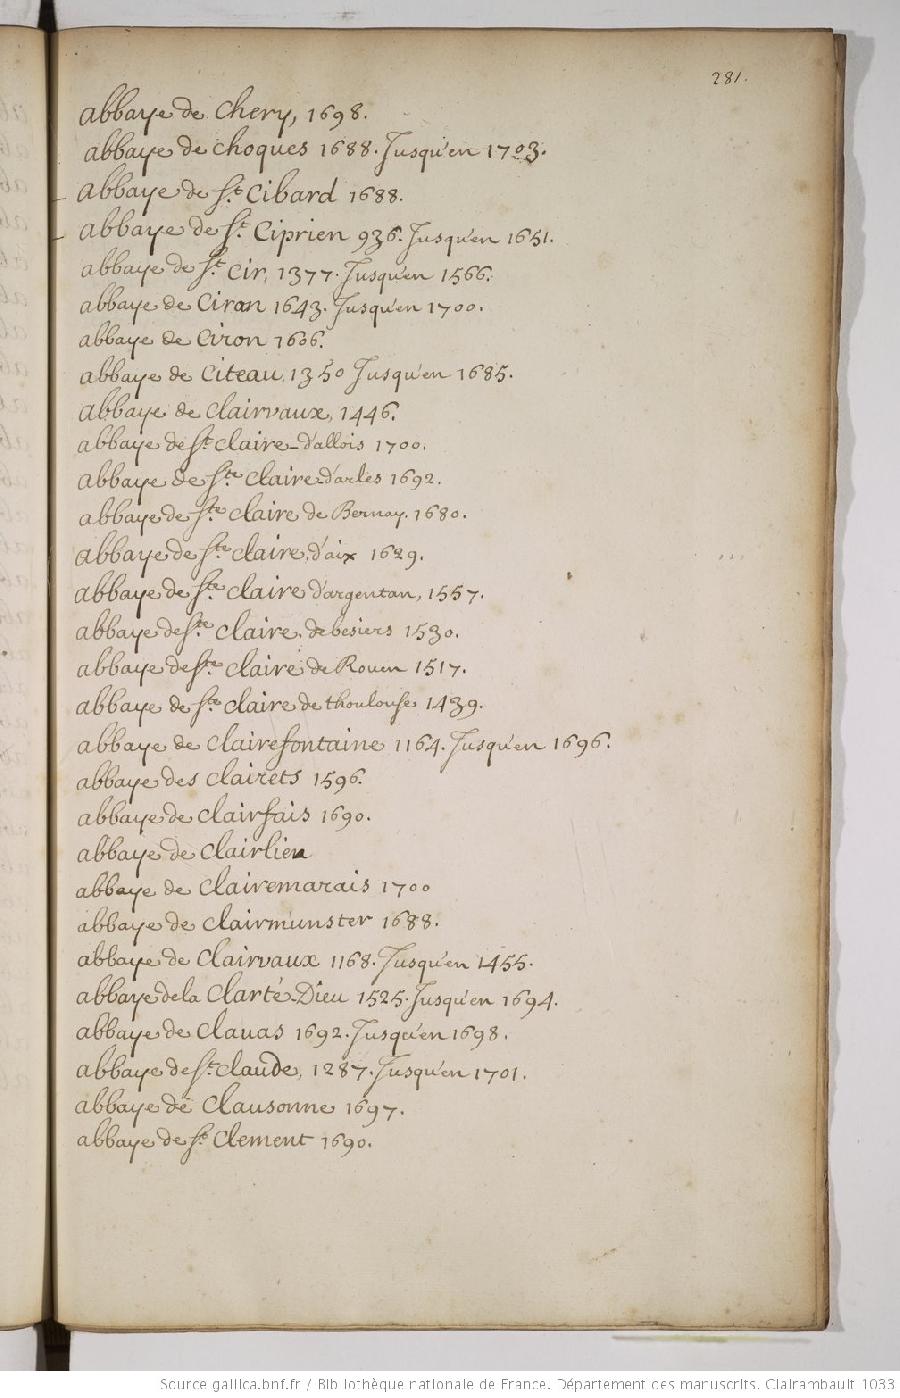 281.
abbaye de Chery, 1698.
abbaye de Choques 1688. Jusqu'en 1703.
abbaye de St. Cibard 1688.
abbaye de St. Ciprien 936. Jusqu'en 1651.
abbaye de St. Cir, 1377. Jusqu'en 1566.
abbaye de Ciran 1643. Jusqu'en 1700.
abbaye de Ciron 1606.
abbaye de Citeau, 1350 Jusqu'en 1685.
abbaye de Clairvaux, 1446.
abbaye de St. Claire d'allois 1700.
abbaye de Ste. Claire d'arles 1692.
abbaye de Ste. Claire de Bernay. 1680.
abbaye de Ste. Claire, d'aix 1629.
abbaye de Ste. Claire d'argentan, 1557.
abbaye de Ste. Claire, de besiers 1530.
abbaye de Ste. Claire de Rouen 1517.
abbaye de Ste. Claire de thoulouse 1439.
abbaye de Clairefontaine 1164. Jusqu'en 1696.
abbaye des Clairets 1596.
abbaye de Clairfais 1690.
abbaye de Clairlieu
abbaye de Clairemarais 1700
abbaye de Clairmunster 1688.
abbaye de Clairvaux 1168. Jusqu'en 1455.
abbaye de la Clarté-Dieu 1525. Jusqu'en 1694.
abbaye de Clavas 1692. Jusqu'en 1698.
abbaye de St. Claude, 1287. Jusqu'en 1701.
abbaye de Clausonne 1697.
abbaye de St. Clement 1690.
Source gallica.bnf.fr / Bibliothèque nationale de France. Département des manuscrits. Clairambault 1033